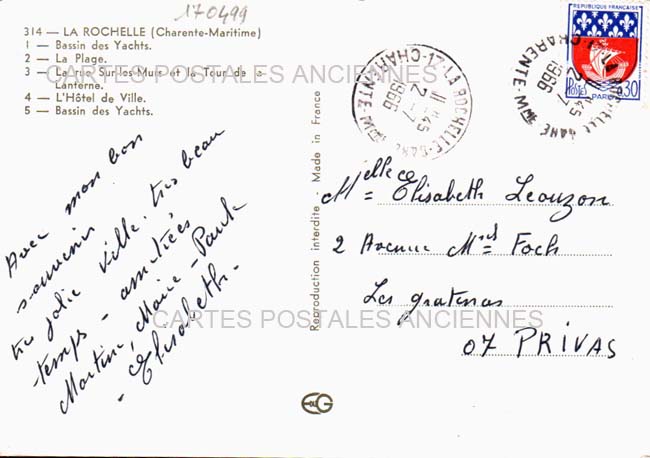 170499
314 — LA ROCHELLE (Charente-Maritime)
1 — Bassin des Yachts.
2 — La Plage.
3 — La rue Sur-les-Murs et la Tour de la
Lanterne.
4 — L'Hôtel de Ville.
5 — Bassin des Yachts.
CARTES POSTALES ANCIENNES
Avec mon bon
souvenir
très jolie ville, très beau
temps - amitiés
Martine, Marie-Paule
- Elisabeth -
Reproduction interdite - Made in France
17-LA ROCHELLE-GARE
CHARENTE-MME
11H45
2-7
1966
17-LA ROCHELLE GARE
CHARENTE-MME
11H45
2-7
1966
REPUBLIQUE FRANCAISE
Postes
0,30
PARIS
Melle Elisabeth Leouzon
2 Avenue Mal Foch
Les gratenas
07 PRIVAS
CARTES POSTALES ANCIENNES
E G